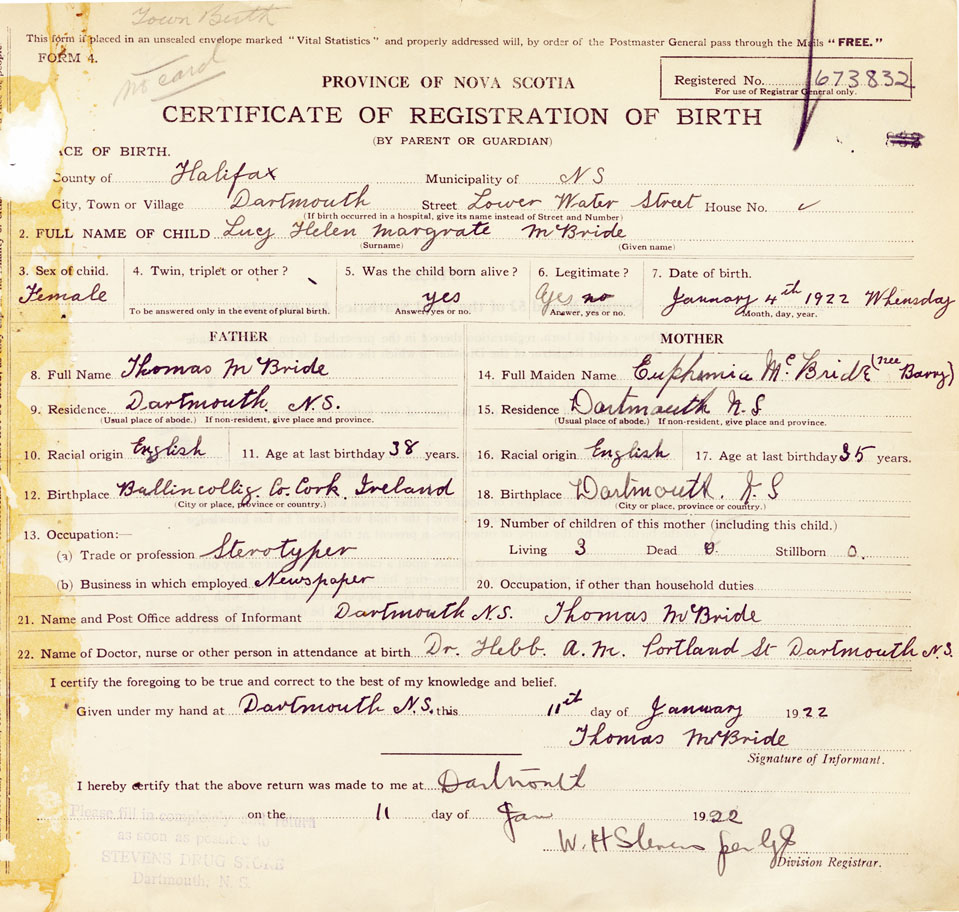 Town Birth
This form if placed in an unsealed envelope marked "Vital Statistics" and properly addressed will, by order of the Postmaster General pass through the Mails "FREE."
FORM 4.
no card
PROVINCE OF NOVA SCOTIA
Registered No. 673832
For use of Registrar General only.
CERTIFICATE OF REGISTRATION OF BIRTH
(BY PARENT OR GUARDIAN)
ACE OF BIRTH.
County of Halifax Municipality of N S
City, Town or Village Dartmouth Street Lower Water Street House No. ✓
(If birth occurred in a hospital, give its name instead of Street and Number)
2. FULL NAME OF CHILD Lucy Helen Margrate McBride
(Surname) (Given name)
3. Sex of child. 4. Twin, triplet or other? 5. Was the child born alive? 6. Legitimate? 7. Date of birth.
Female yes yes no January 4th 1922 Whensday
To be answered only in the event of plural birth. Answer, yes or no. Answer, yes or no. Month, day, year.
FATHER MOTHER
8. Full Name Thomas McBride 14. Full Maiden Name Euphemia McBride (nee Barry)
9. Residence Dartmouth N.S. 15. Residence Dartmouth N.S
(Usual place of abode.) If non-resident, give place and province. (Usual place of abode.) If non-resident, give place and province.
10. Racial origin English 11. Age at last birthday 38 years. 16. Racial origin English 17. Age at last birthday 35 years.
12. Birthplace Ballincollig. Co. Cork, Ireland 18. Birthplace Dartmouth. N.S
(City or place, province or country.) (City or place, province or country.)
13. Occupation:— 19. Number of children of this mother (including this child.)
(a) Trade or profession Sterotyper Living 3 Dead 0. Stillborn 0.
(b) Business in which employed Newspaper 20. Occupation, if other than household duties
21. Name and Post Office address of Informant Dartmouth N.S. Thomas McBride
22. Name of Doctor, nurse or other person in attendance at birth Dr. Hebb. A.M. Portland St Dartmouth N.S.
I certify the foregoing to be true and correct to the best of my knowledge and belief.
Given under my hand at Dartmouth N.S. this 11th day of January 1922
Thomas McBride
Signature of Informant.
I hereby certify that the above return was made to me at Dartmouth
on the 11 day of Jan 1922
W. H Stevens per
Division Registrar.
Please fill in completely and return
as soon as possible to
STEVENS DRUG STORE
Dartmouth, N. S.